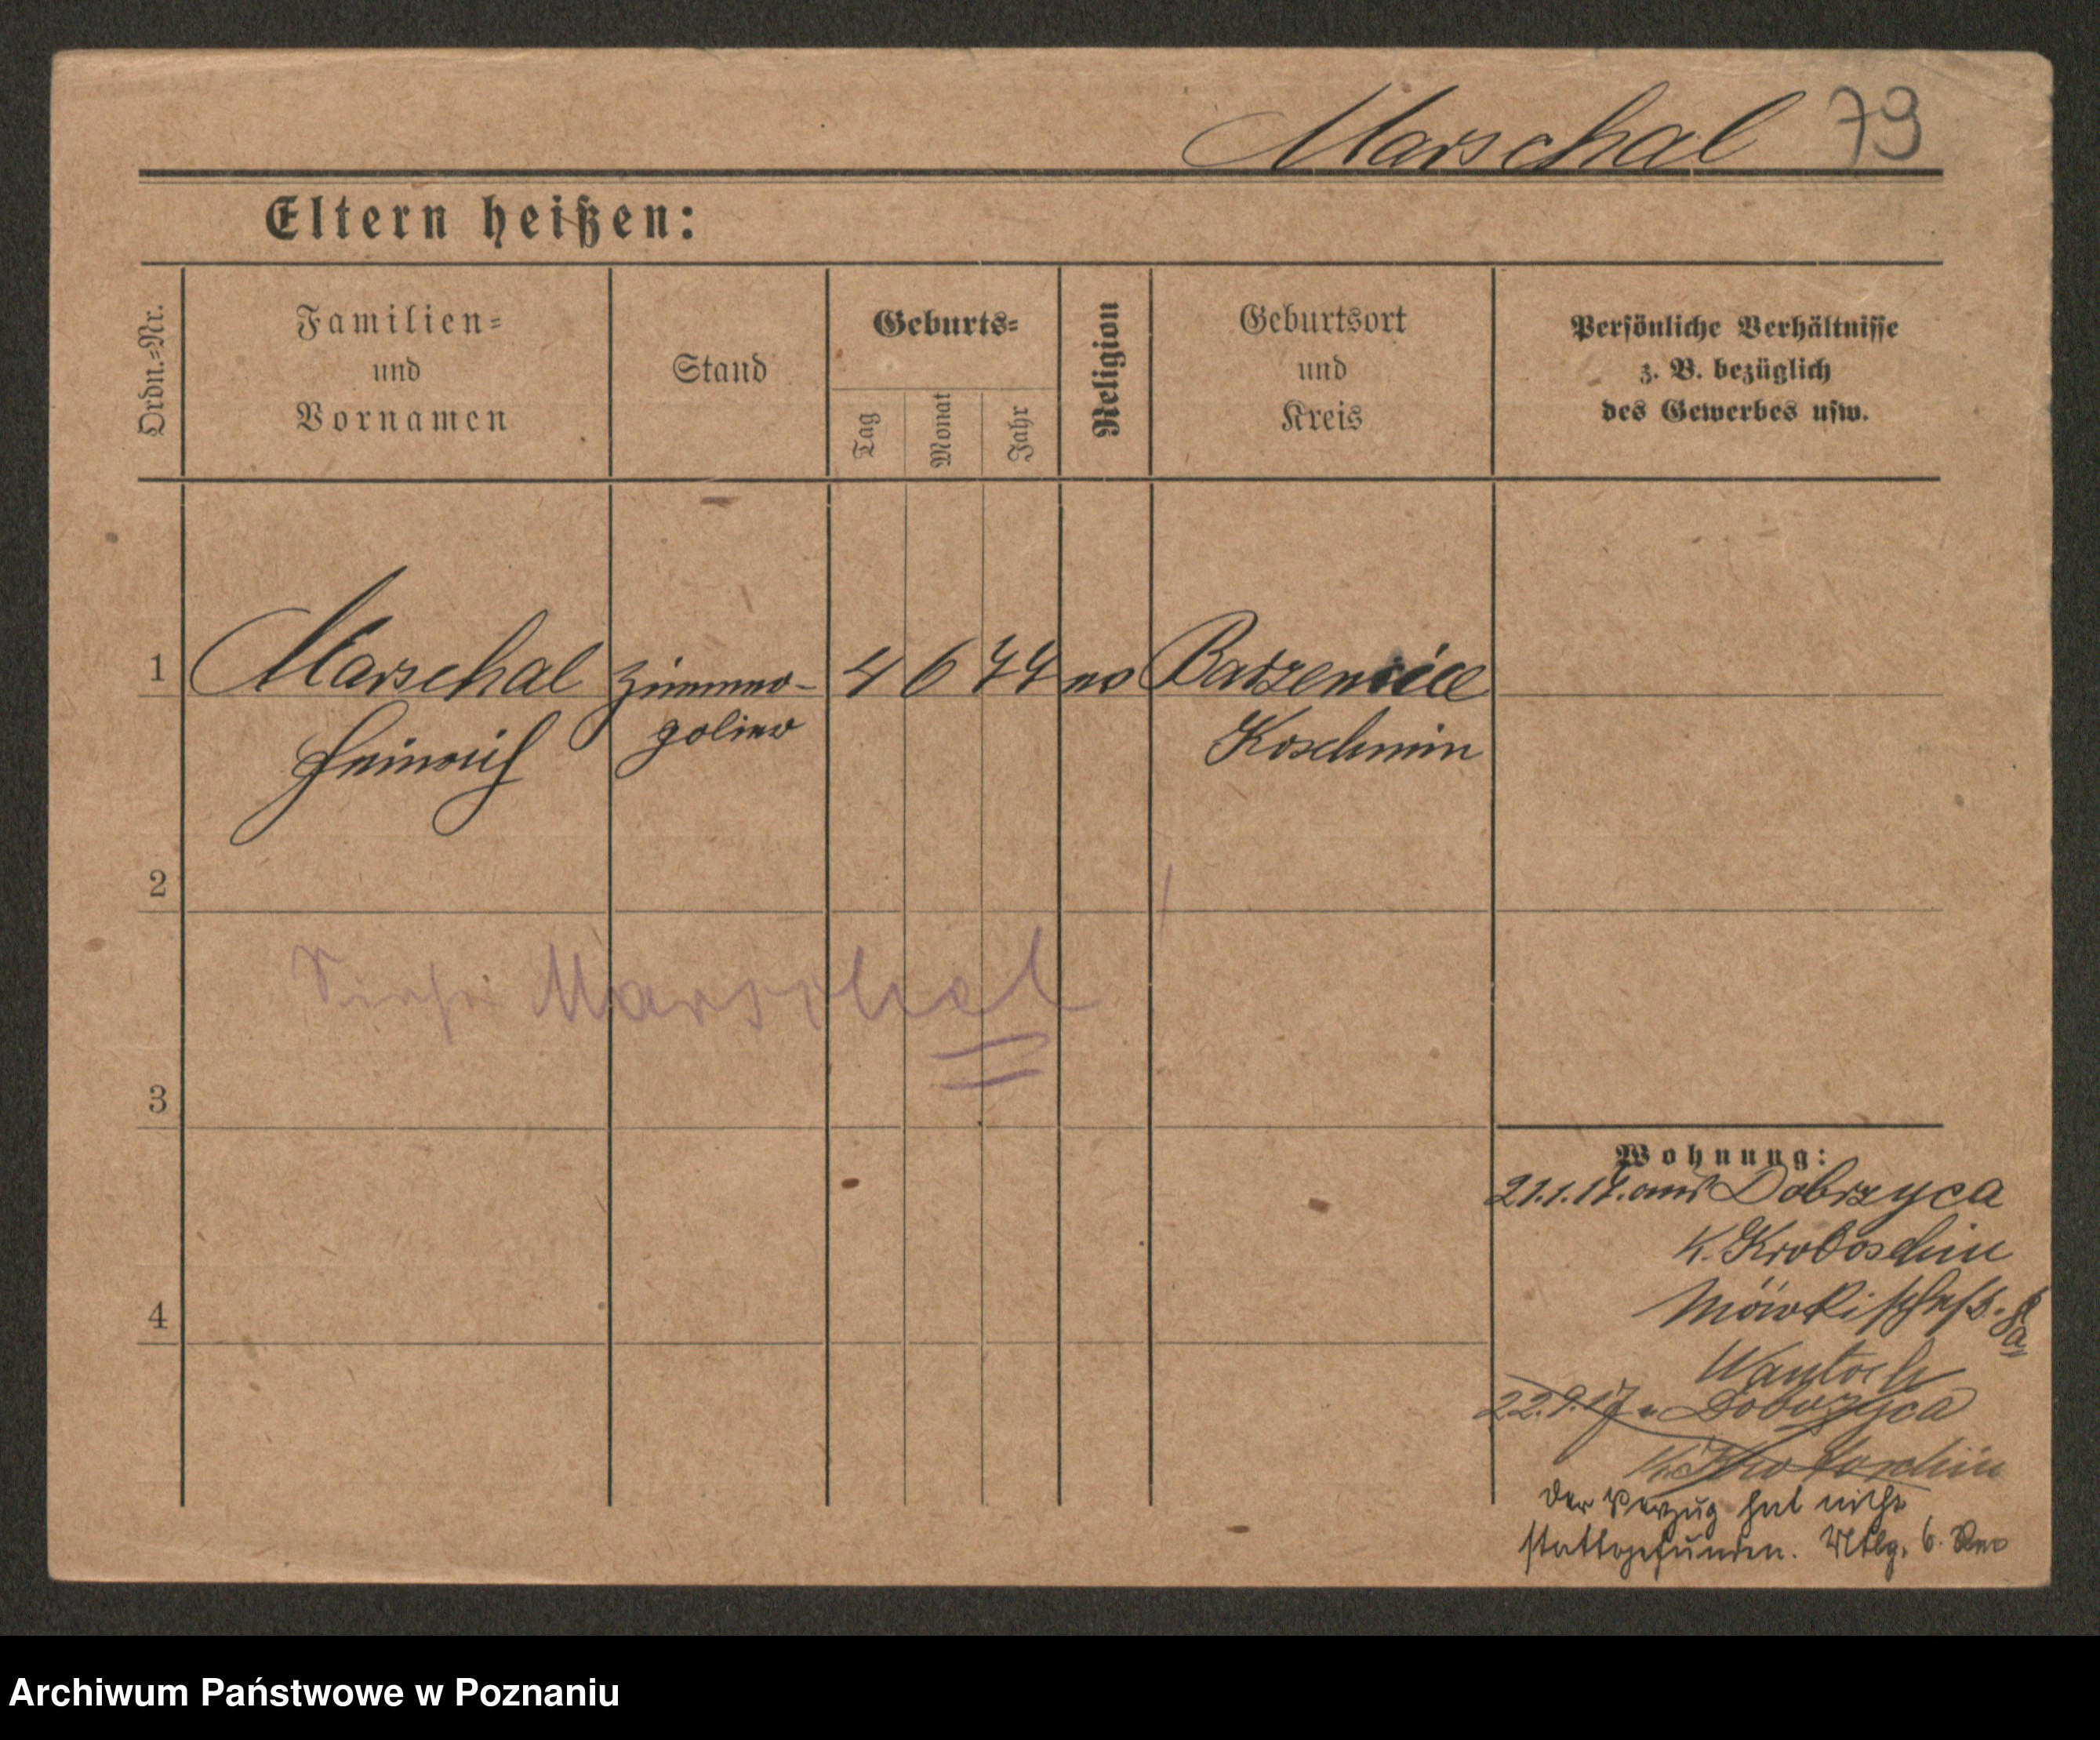 Marschal 79
Eltern heißen:
Ordn.=Nr.
Familien=
und
Vornamen
Stand
Geburts=
Tag
Monat
Jahr
Religion
Geburtsort
und
Kreis
Persönliche Verhältnisse
z. B. bezüglich
des Gewerbes usw.
1 Marschal Zimmer- 4 6 77 ev
Heinrich polier Koschmin
2
Siehe Marschal!
3
Wohnung:
21.1.17. aus Dobrzyca
K. Krotoschin
4
Märkischestr.
Wantoch
22.9.17 n Dobrzyca
K. Krotoschin
Der Verzug hat nicht
stattgefunden. Mtlg. 6. Rev
Archiwum Państwowe w Poznaniu